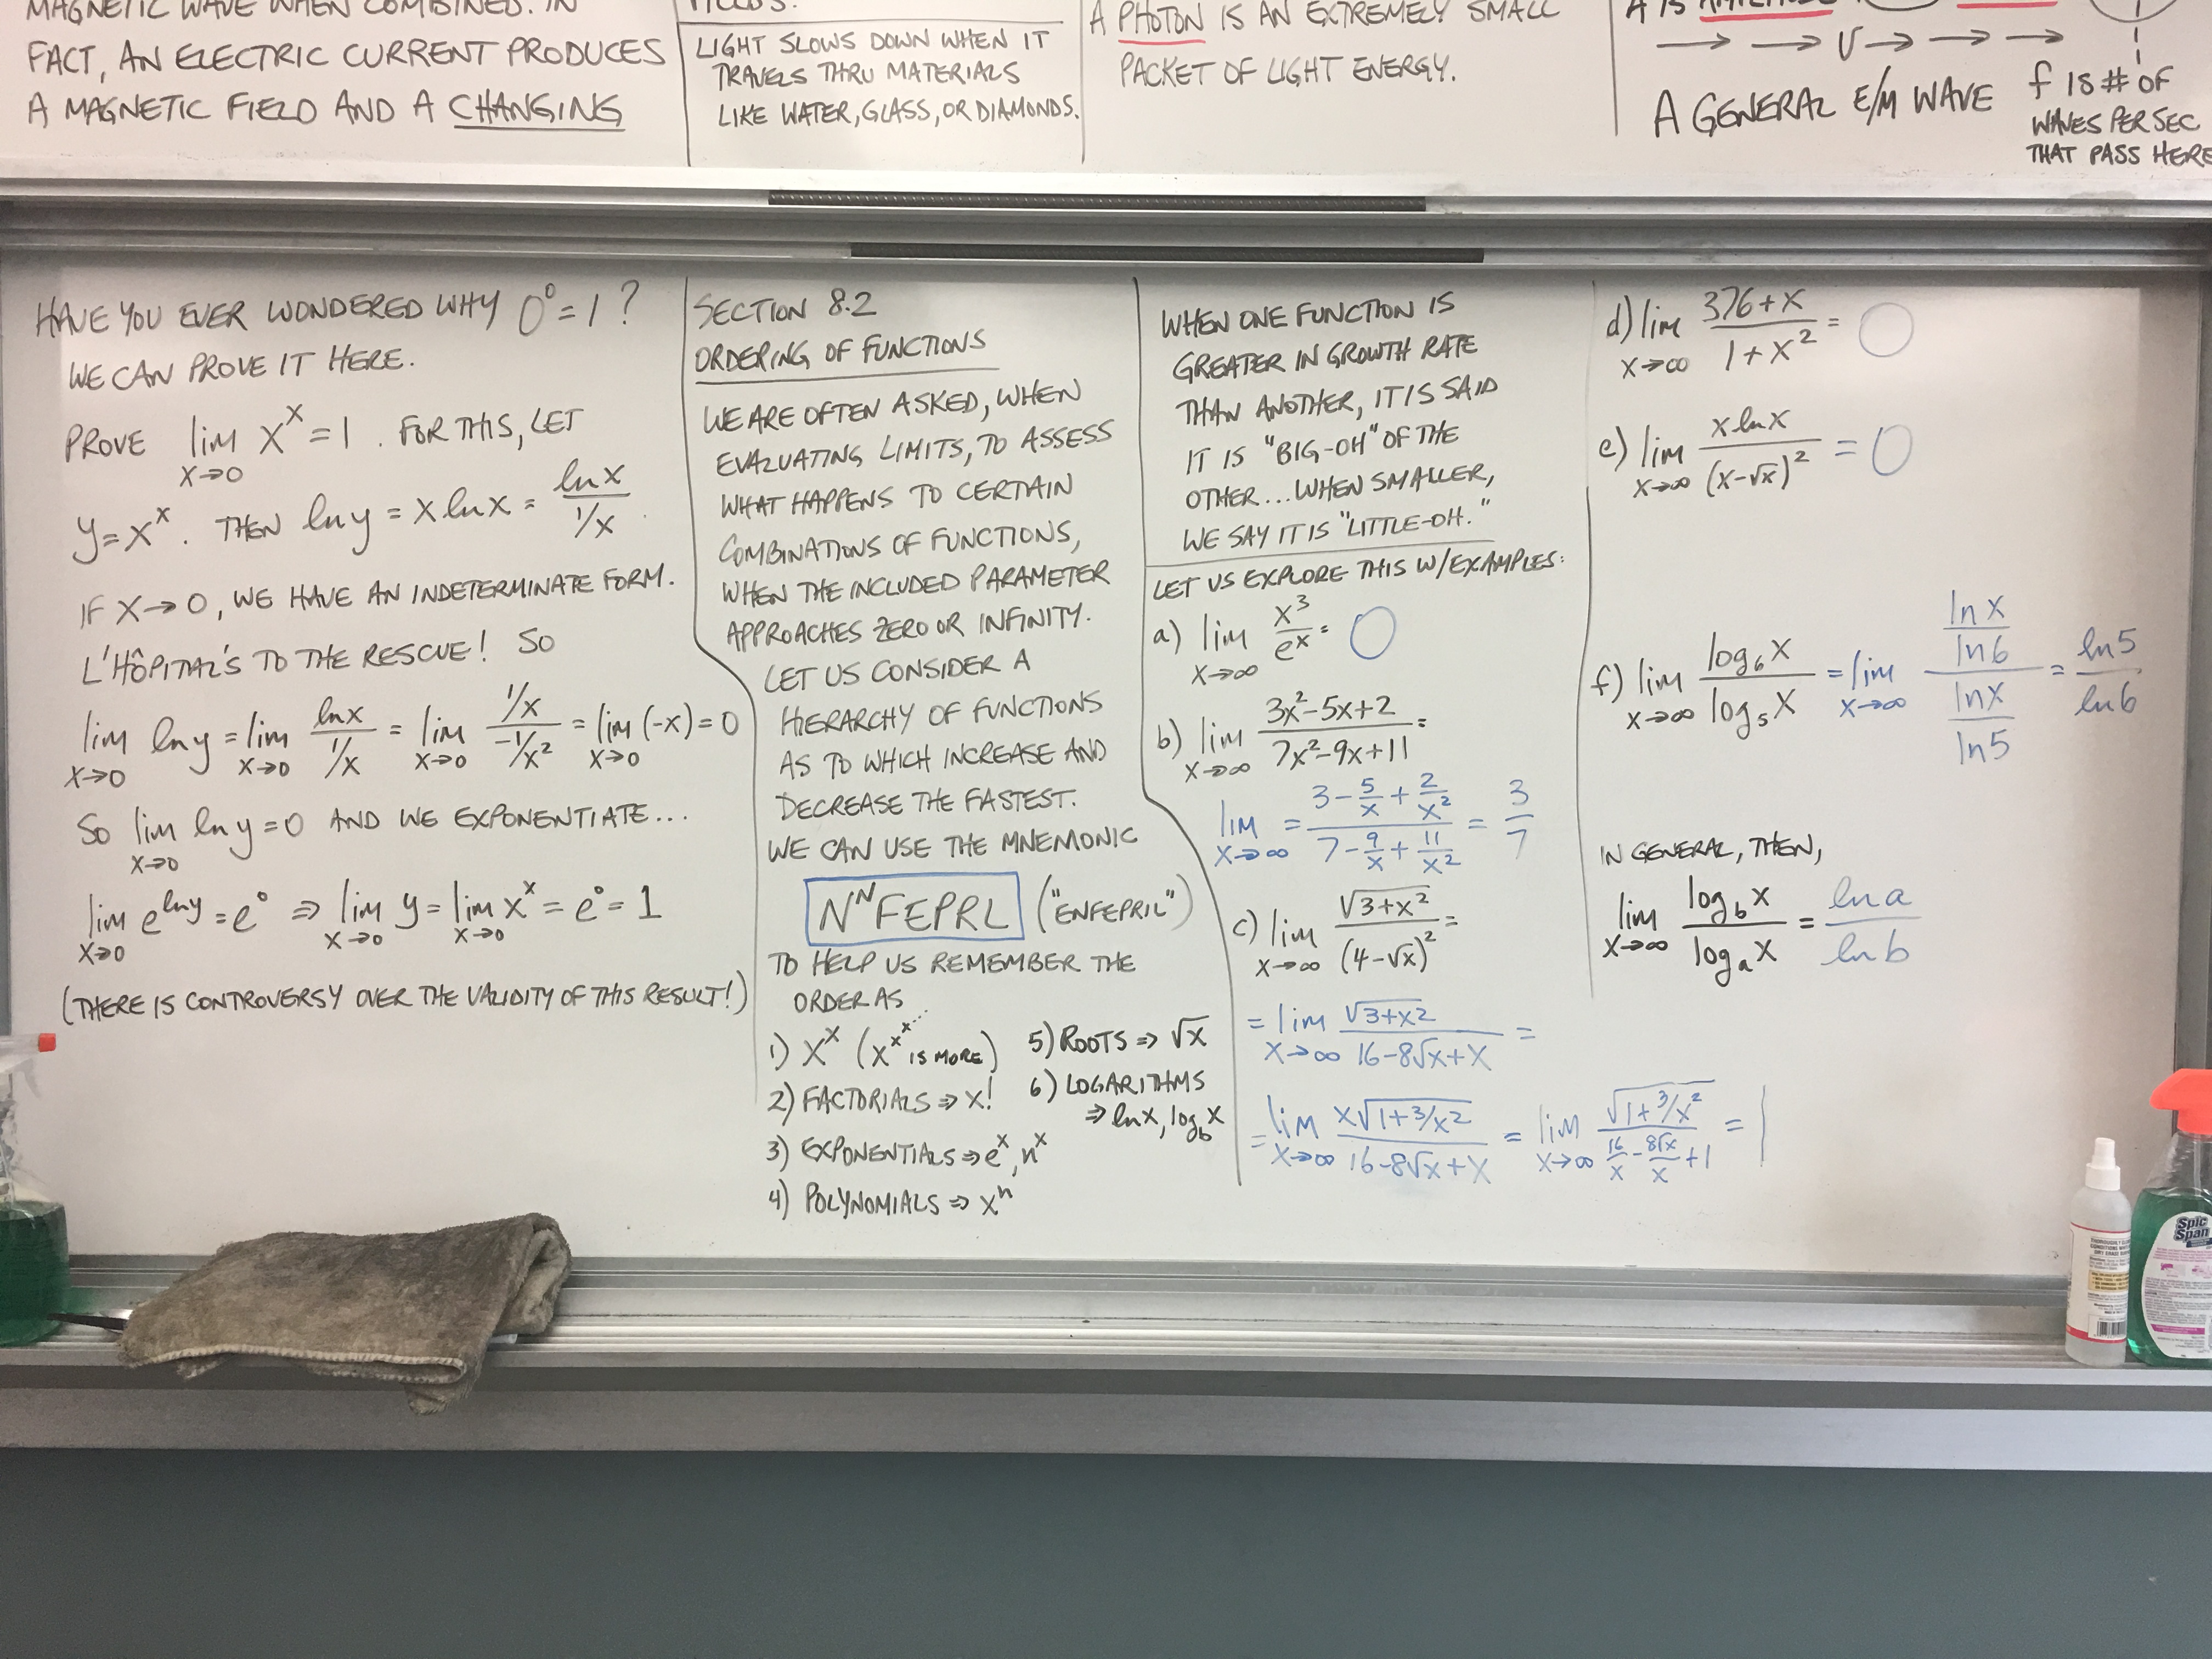 MAGNETIC WAVE WHEN COMBINED. IN
FACT, AN ELECTRIC CURRENT PRODUCES
A MAGNETIC FIELD AND A CHANGING
LIGHT SLOWS DOWN WHEN IT
TRAVELS THRU MATERIALS
LIKE WATER, GLASS, OR DIAMONDS.
A PHOTON IS AN EXTREMELY SMALL
PACKET OF LIGHT ENERGY.
A IS AMPLITUDE
→ → V → → →
A GENERAL E/M WAVE
f IS # OF
WAVES PER SEC
THAT PASS HERE
HAVE YOU EVER WONDERED WHY 0⁰ = 1?
WE CAN PROVE IT HERE.
PROVE lim x→0 x^x = 1. FOR THIS, LET
y = x^x. THEN ln y = x ln x = ln x / (1/x).
IF X→0, WE HAVE AN INDETERMINATE FORM.
L'HÔPITAL'S TO THE RESCUE! SO
lim x→0 ln y = lim x→0 ln x / (1/x) = lim x→0 (1/x) / (-1/x²) = lim x→0 (-x) = 0
SO lim x→0 ln y = 0 AND WE EXPONENTIATE...
lim x→0 e^(ln y) = e⁰ ⇒ lim x→0 y = lim x→0 x^x = e⁰ = 1
(THERE IS CONTROVERSY OVER THE VALIDITY OF THIS RESULT!)
SECTION 8.2
ORDERING OF FUNCTIONS
WE ARE OFTEN ASKED, WHEN
EVALUATING LIMITS, TO ASSESS
WHAT HAPPENS TO CERTAIN
COMBINATIONS OF FUNCTIONS,
WHEN THE INCLUDED PARAMETER
APPROACHES ZERO OR INFINITY.
LET US CONSIDER A
HIERARCHY OF FUNCTIONS
AS TO WHICH INCREASE AND
DECREASE THE FASTEST.
WE CAN USE THE MNEMONIC
N^N FEPRL ("ENFEPRIL")
TO HELP US REMEMBER THE
ORDER AS
1) x^x (x^x^x^... IS MORE)
2) FACTORIALS ⇒ x!
3) EXPONENTIALS ⇒ e^x, n^x
4) POLYNOMIALS ⇒ x^n
5) ROOTS ⇒ √x
6) LOGARITHMS
⇒ ln x, log_b x
WHEN ONE FUNCTION IS
GREATER IN GROWTH RATE
THAN ANOTHER, IT IS SAID
IT IS "BIG-OH" OF THE
OTHER... WHEN SMALLER,
WE SAY IT IS "LITTLE-OH."
LET US EXPLORE THIS W/EXAMPLES:
a) lim x→∞ x³ / e^x = 0
b) lim x→∞ (3x²-5x+2) / (7x²-9x+11) =
lim x→∞ = (3 - 5/x + 2/x²) / (7 - 9/x + 11/x²) = 3/7
c) lim x→∞ √(3+x²) / (4-√x)² =
= lim x→∞ √(3+x²) / (16-8√x+x) =
= lim x→∞ x√(1+3/x²) / (16-8√x+x) = lim x→∞ √(1+3/x²) / (16/x - 8√x/x + 1) = 1
d) lim x→∞ (376+x) / (1+x²) = 0
e) lim x→∞ x ln x / (x-√x)² = 0
f) lim x→∞ log₆x / log₅x = lim x→∞ (ln x / ln 6) / (ln x / ln 5) = ln 5 / ln 6
IN GENERAL, THEN,
lim x→∞ log_b x / log_a x = ln a / ln b
Spic
Span